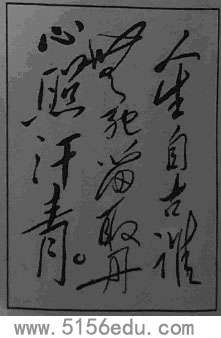 人生自古谁
无死留取丹
心照汗青。
www.5156edu.com